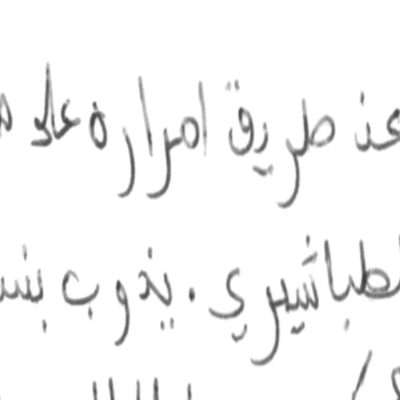 عن طريق امراره على
لطباشيري . يذوب بنس